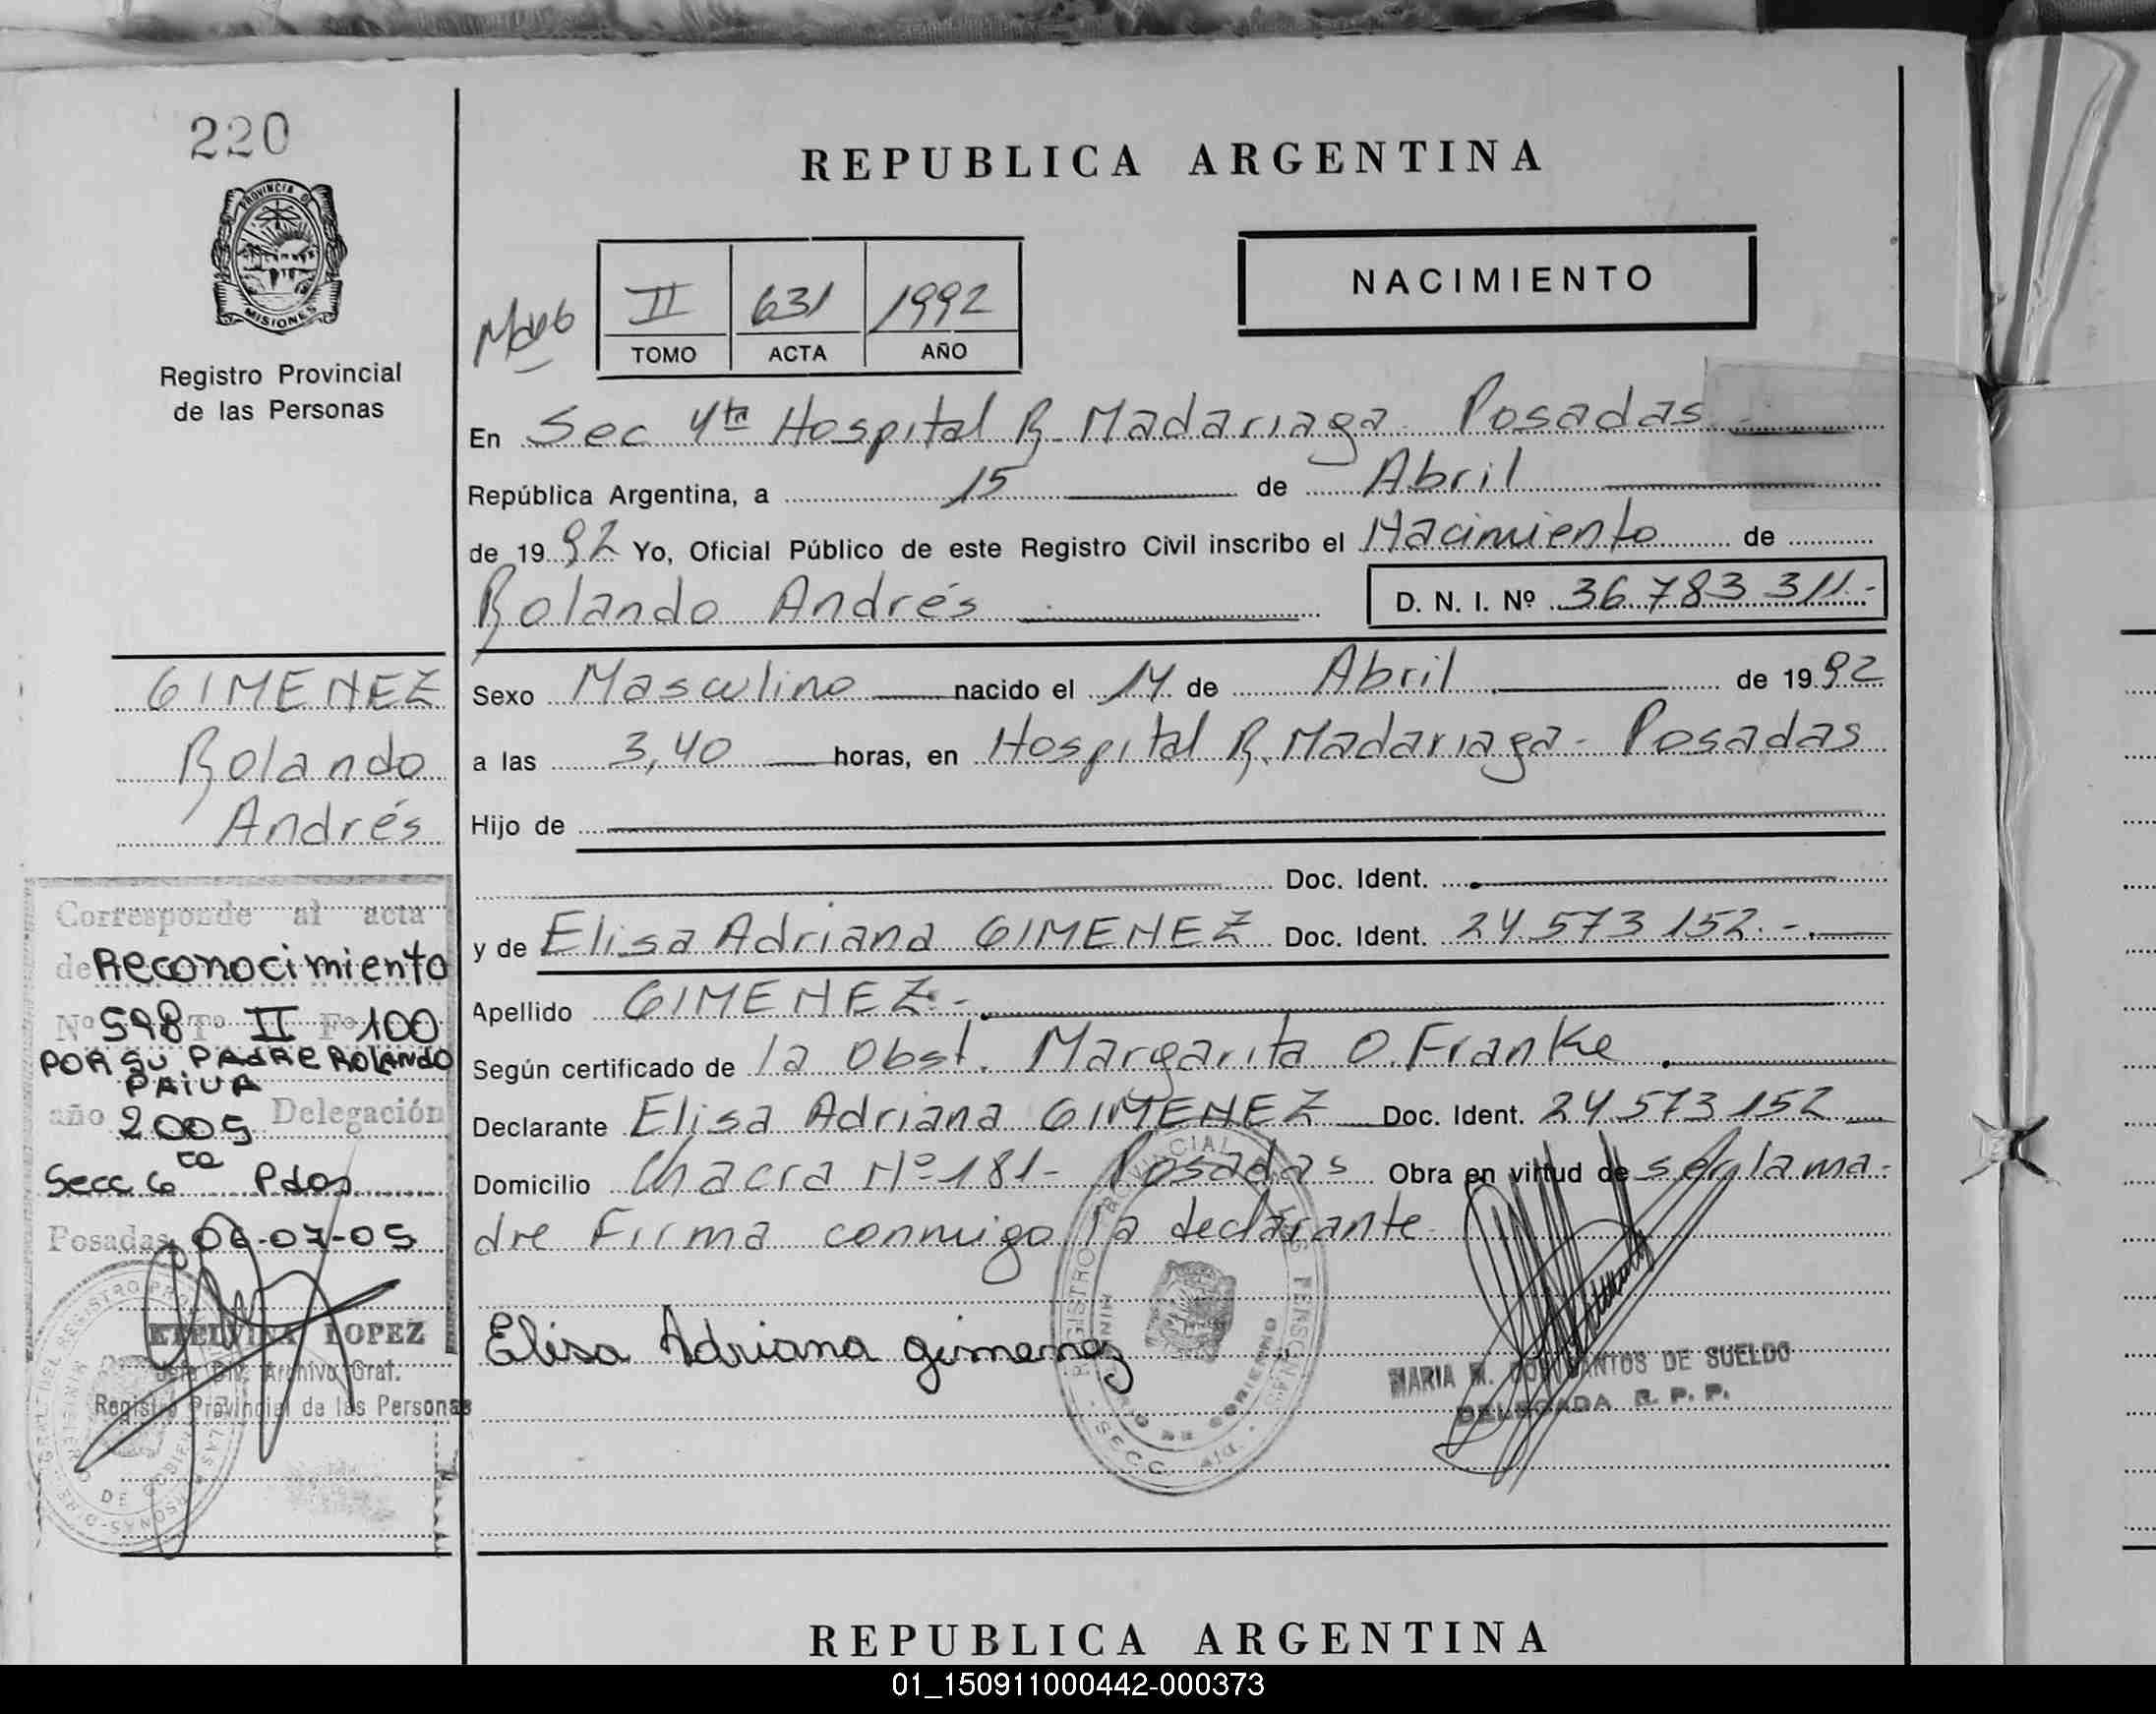 220
PROVINCIA DE
MISIONES
Registro Provincial
de las Personas
GIMENEZ
Rolando
Andrés
Corresponde al acta
de Reconocimiento
Nº 598 Tº II Fº 100
POR SU PADRE ROLANDO
PAIVA
año 2005 Delegación
Secc 6ta Pdas
Posadas, 06-07-05
ETELVINA LOPEZ
Jefa Div. Archivo Graf.
Registro Provincial de las Personas
REPUBLICA ARGENTINA
NACIMIENTO
II 631 1992
TOMO ACTA AÑO
En Sec 4ta Hospital R. Madariaga Posadas
República Argentina, a 15 de Abril
de 1992 Yo, Oficial Público de este Registro Civil inscribo el Nacimiento de
Rolando Andrés D. N. I. Nº 36.783 311.-
Sexo Masculino nacido el 14 de Abril de 1992
a las 3,40 horas, en Hospital R. Madariaga - Posadas
Hijo de
Doc. Ident.
y de Elisa Adriana GIMENEZ Doc. Ident. 24.573 152.-
Apellido GIMENEZ.-
Según certificado de la Obst. Margarita O. Franke
Declarante Elisa Adriana GIMENEZ Doc. Ident. 24.573 152
Domicilio Chacra Nº 181- Posadas Obra en virtud de ser la ma-
dre Firma conmigo la declarante.
Elisa Adriana gimenez
MARIA M. DE SUELDO
DELEGADA R. P. P.
REPUBLICA ARGENTINA
01_150911000442-000373